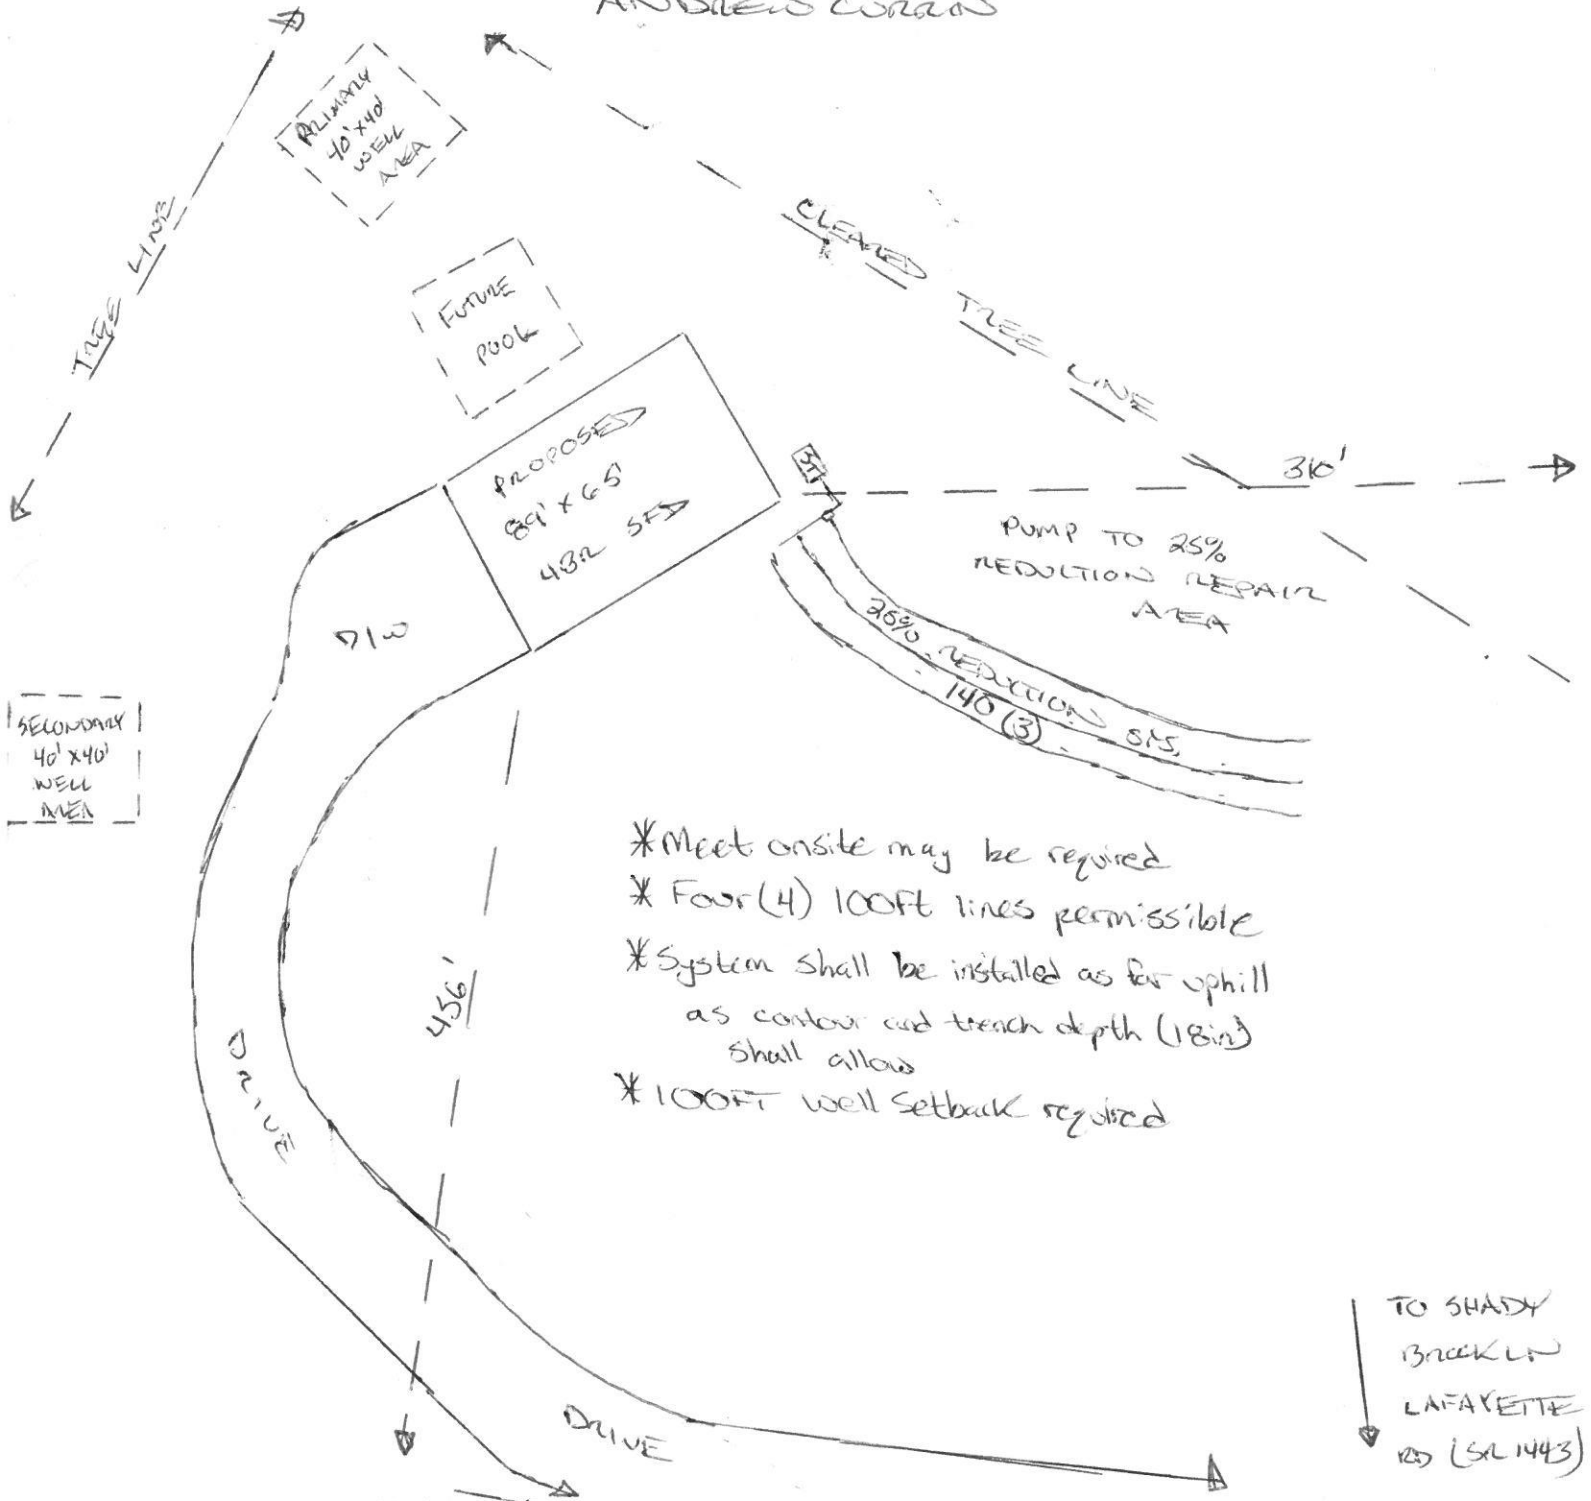 ANDREW CURRIN
PRIMARY
40'X40'
WELL
AREA
TREE LINE
CLEARED TREE LINE
FUTURE
POOL
PROPOSED
89' X 65'
4BR SFD
ST
310'
PUMP TO 25%
REDUCTION REPAIR
AREA
D/W
25% REDUCTION SYS.
140 (3)
SECONDARY
40'X40'
WELL
AREA
* Meet onsite may be required
* Four (4) 100ft lines permissible
* System shall be installed as far uphill
as contour and trench depth (18in)
shall allow
* 100FT well setback required
456'
DRIVE
DRIVE
TO SHADY
BROOK LN
LAFAYETTE
RD (SR 1443)